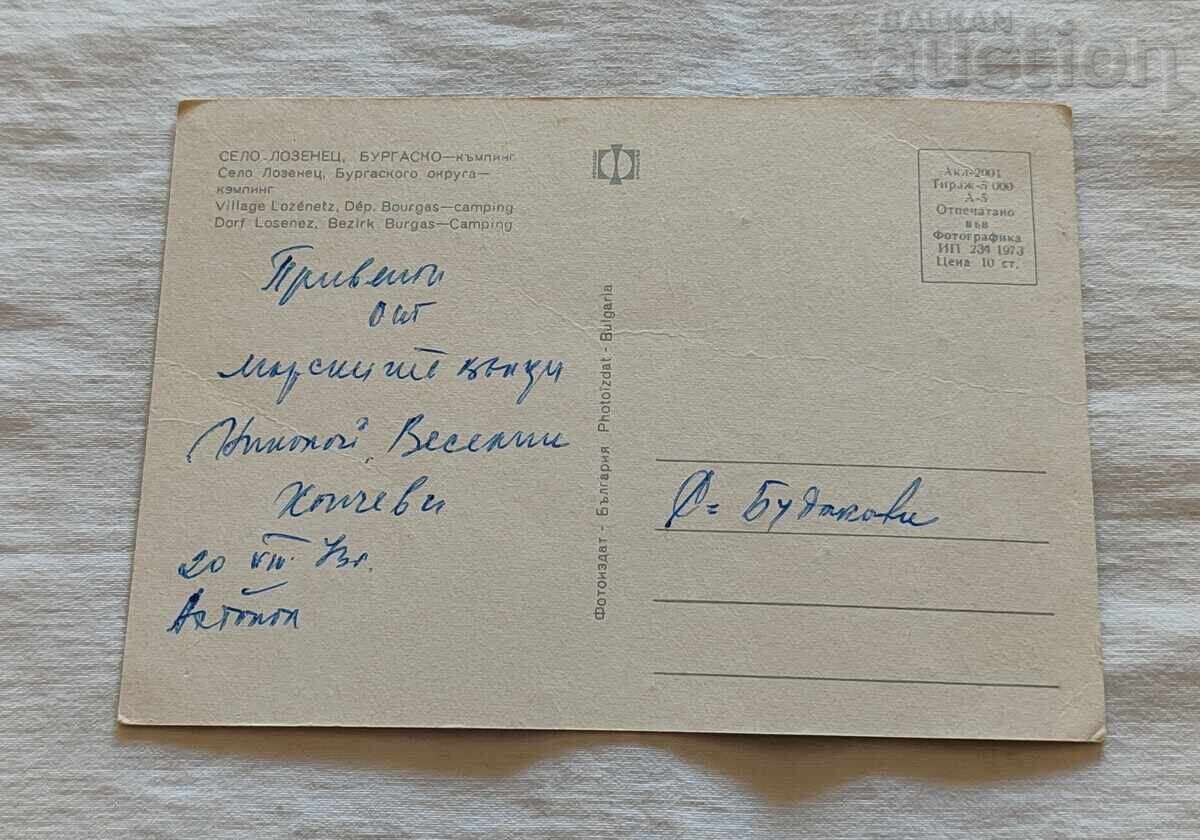 BALKAN
auction
СЕЛО ЛОЗЕНЕЦ, БУРГАСКО—къмпинг
Село Лозенец, Бургаского округа—
кэмпинг
Village Lozénetz, Dép. Bourgas—camping
Dorf Losenez, Bezirk Burgas—Camping
Привети
от
морските вълци
Николай, Веселин
Кончеви
20 VIII. 73г.
Ахтопол
Фотоиздат - България Photoizdat - Bulgaria
Акл-2001
Тираж-5 000
А-5
Отпечатано
във
Фотографика
ИП 234 1973
Цена 10 ст.
Будакови